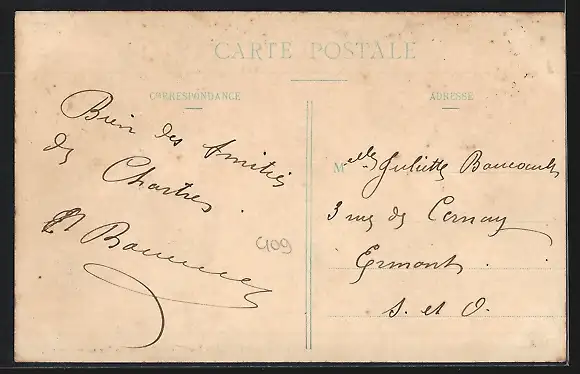 CARTE POSTALE
CORRESPONDANCE
ADRESSE
Bien des Amitiés
de Chartres.
C409
Melle Juliette
3 rue de Cernay
Ermont.
S. et O.